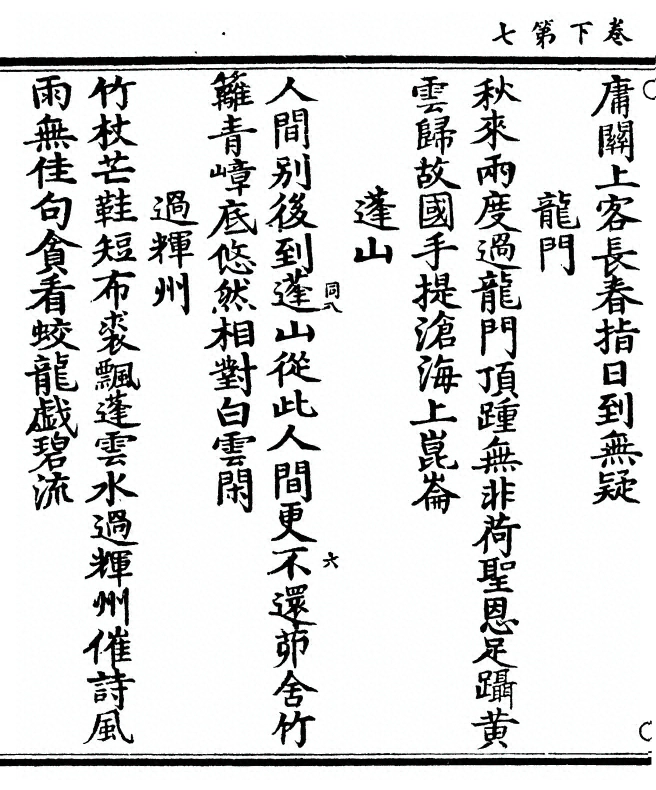 卷下第七
庸關上客長春指日到無疑
龍門
秋來兩度過龍門頂踵無非荷聖恩足躡黄
雲歸故國手提滄海上崑崙
蓬山
人間别後到蓬山從此人間更不還茆舍竹
同八
六
籬青嶂底悠然相對白雲閑
過輝州
竹杖芒鞋短布裘飄蓬雲水過輝州催詩風
雨無佳句貪看蛟龍戲碧流